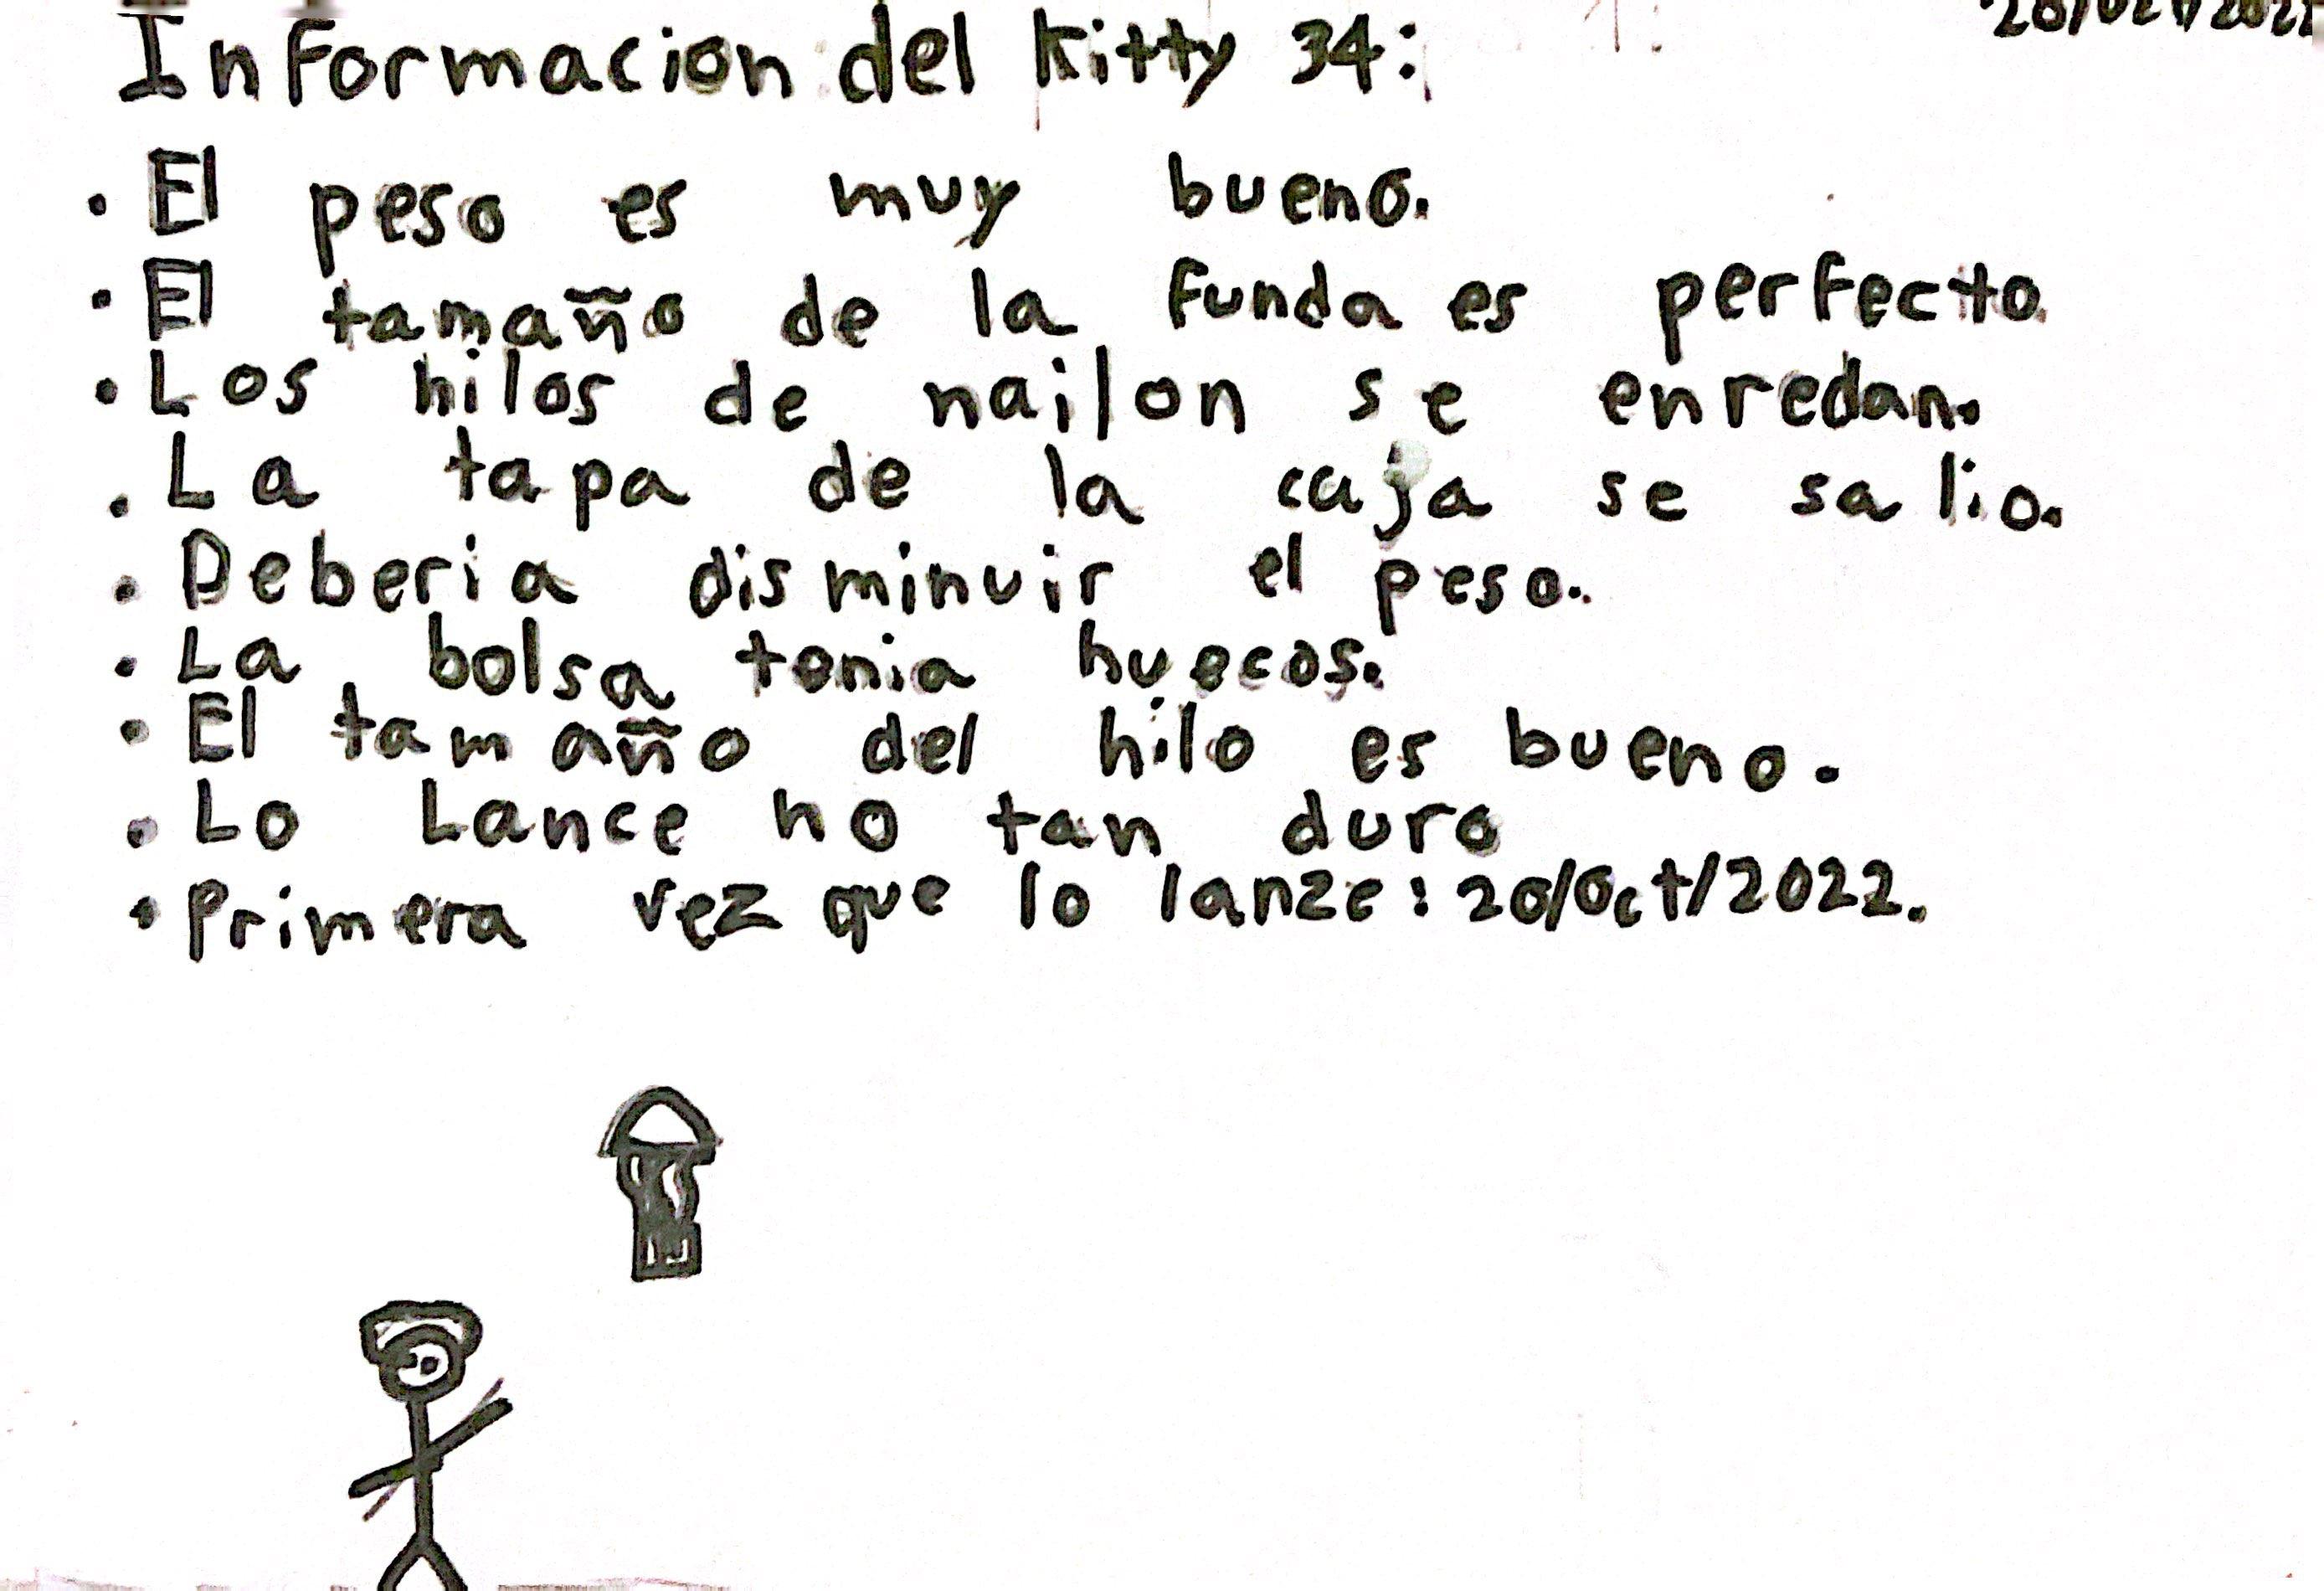 20/Oct/2022
Informacion del Kitty 34:
• El peso es muy bueno.
• El tamaño de la funda es perfecto.
• Los hilos de nailon se enredan.
• La tapa de la caja se salio.
• Deberia disminuir el peso.
• La bolsa tenia huecos.
• El tamaño del hilo es bueno.
• Lo Lance no tan duro
• Primera vez que lo lanze: 20/Oct/2022.